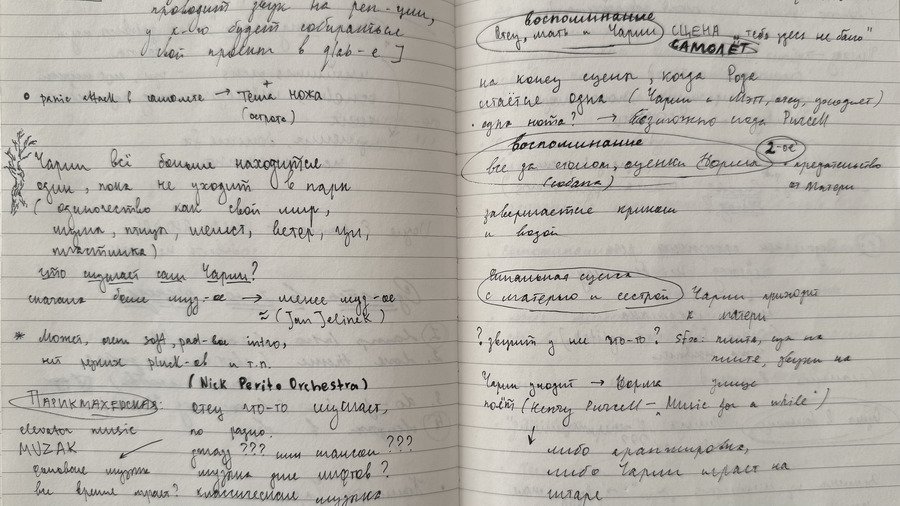 проводит звук на реп-ции,
у к-го будет собираться
мой проект в glab-е.]
panic attack в самолёте → + тема ножа
(острота)
Чарли всё больше находится
один, пока не уходит в парк
(одиночество как свой мир,
шума, птицы, шелест, ветер,
пластинка)
что слушает сам Чарли?
сначала более муз-ое → менее муз-ое
≈ (Jan Jelinek)
* Может, очень soft, pad-вое intro,
нет резких pluck-ов и т.п.
(Nick Perito Orchestra)
ПАРИКМАХЕРСКАЯ: отец что-то слушает,
elevator music по радио.
MUZAK ??? или ???
фоновая музыка музыка для лифтов?
все время играет? классическая музыка
воспоминание
Отец, мать и Чарли СЦЕНА "тебя здесь не было"
САМОЛЁТ
на конец сцены, когда Рода
остаётся одна (Чарли и Мэтт, отец,
• одна нота? → Возможно сюда Purcell
воспоминание 2-ое
все за столом, сценки Ворма • предательство
(собака) от матери
завершается криком
и водой
Финальная сцена
с матерью и сестрой Чарли приходит
к матери
? звучит у неё что-то? sfx: плита, еда на
плите, звуки на
улице
Чарли уходит → Ворма
поёт (Henry Purcell – "Music for a while")
↓
либо аранжировка,
либо Чарли играет на
гитаре